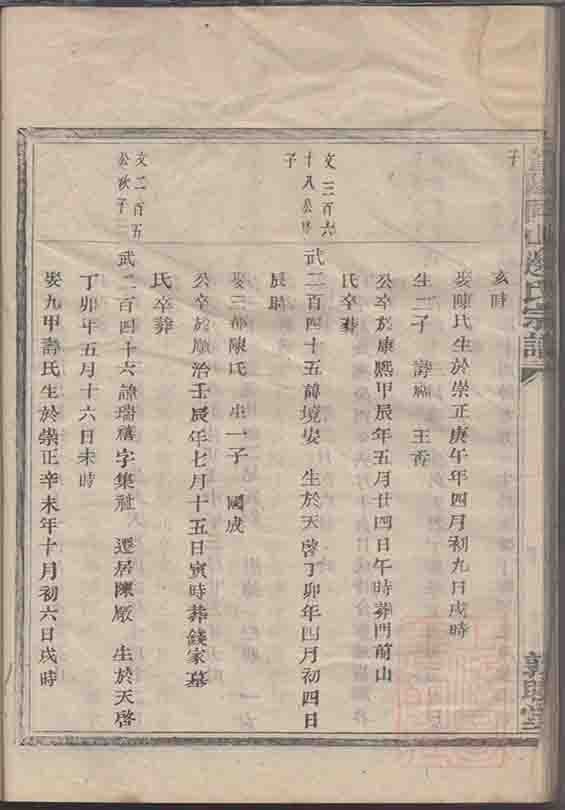 邊氏宗譜
子
亥時
娶陳氏生於崇正庚午年四月初九日戌時
生二子
公卒於康熙甲辰年五月廿四日午時葬門前山
氏卒葬
文二百六
十八公
子
武二百四十五諱境安 生於天啓丁卯年四月初四日
辰時
娶三都陳氏 生一子 國成
公卒於順治壬辰年七月十五日寅時葬錢家墓
氏卒葬
文二百五
公次子
武二百四十六諱瑞禧字集祉 遷居陳厫 生於天啓
丁卯年五月十六日未時
娶九甲壽氏生於崇正辛未年十月初六日戌時